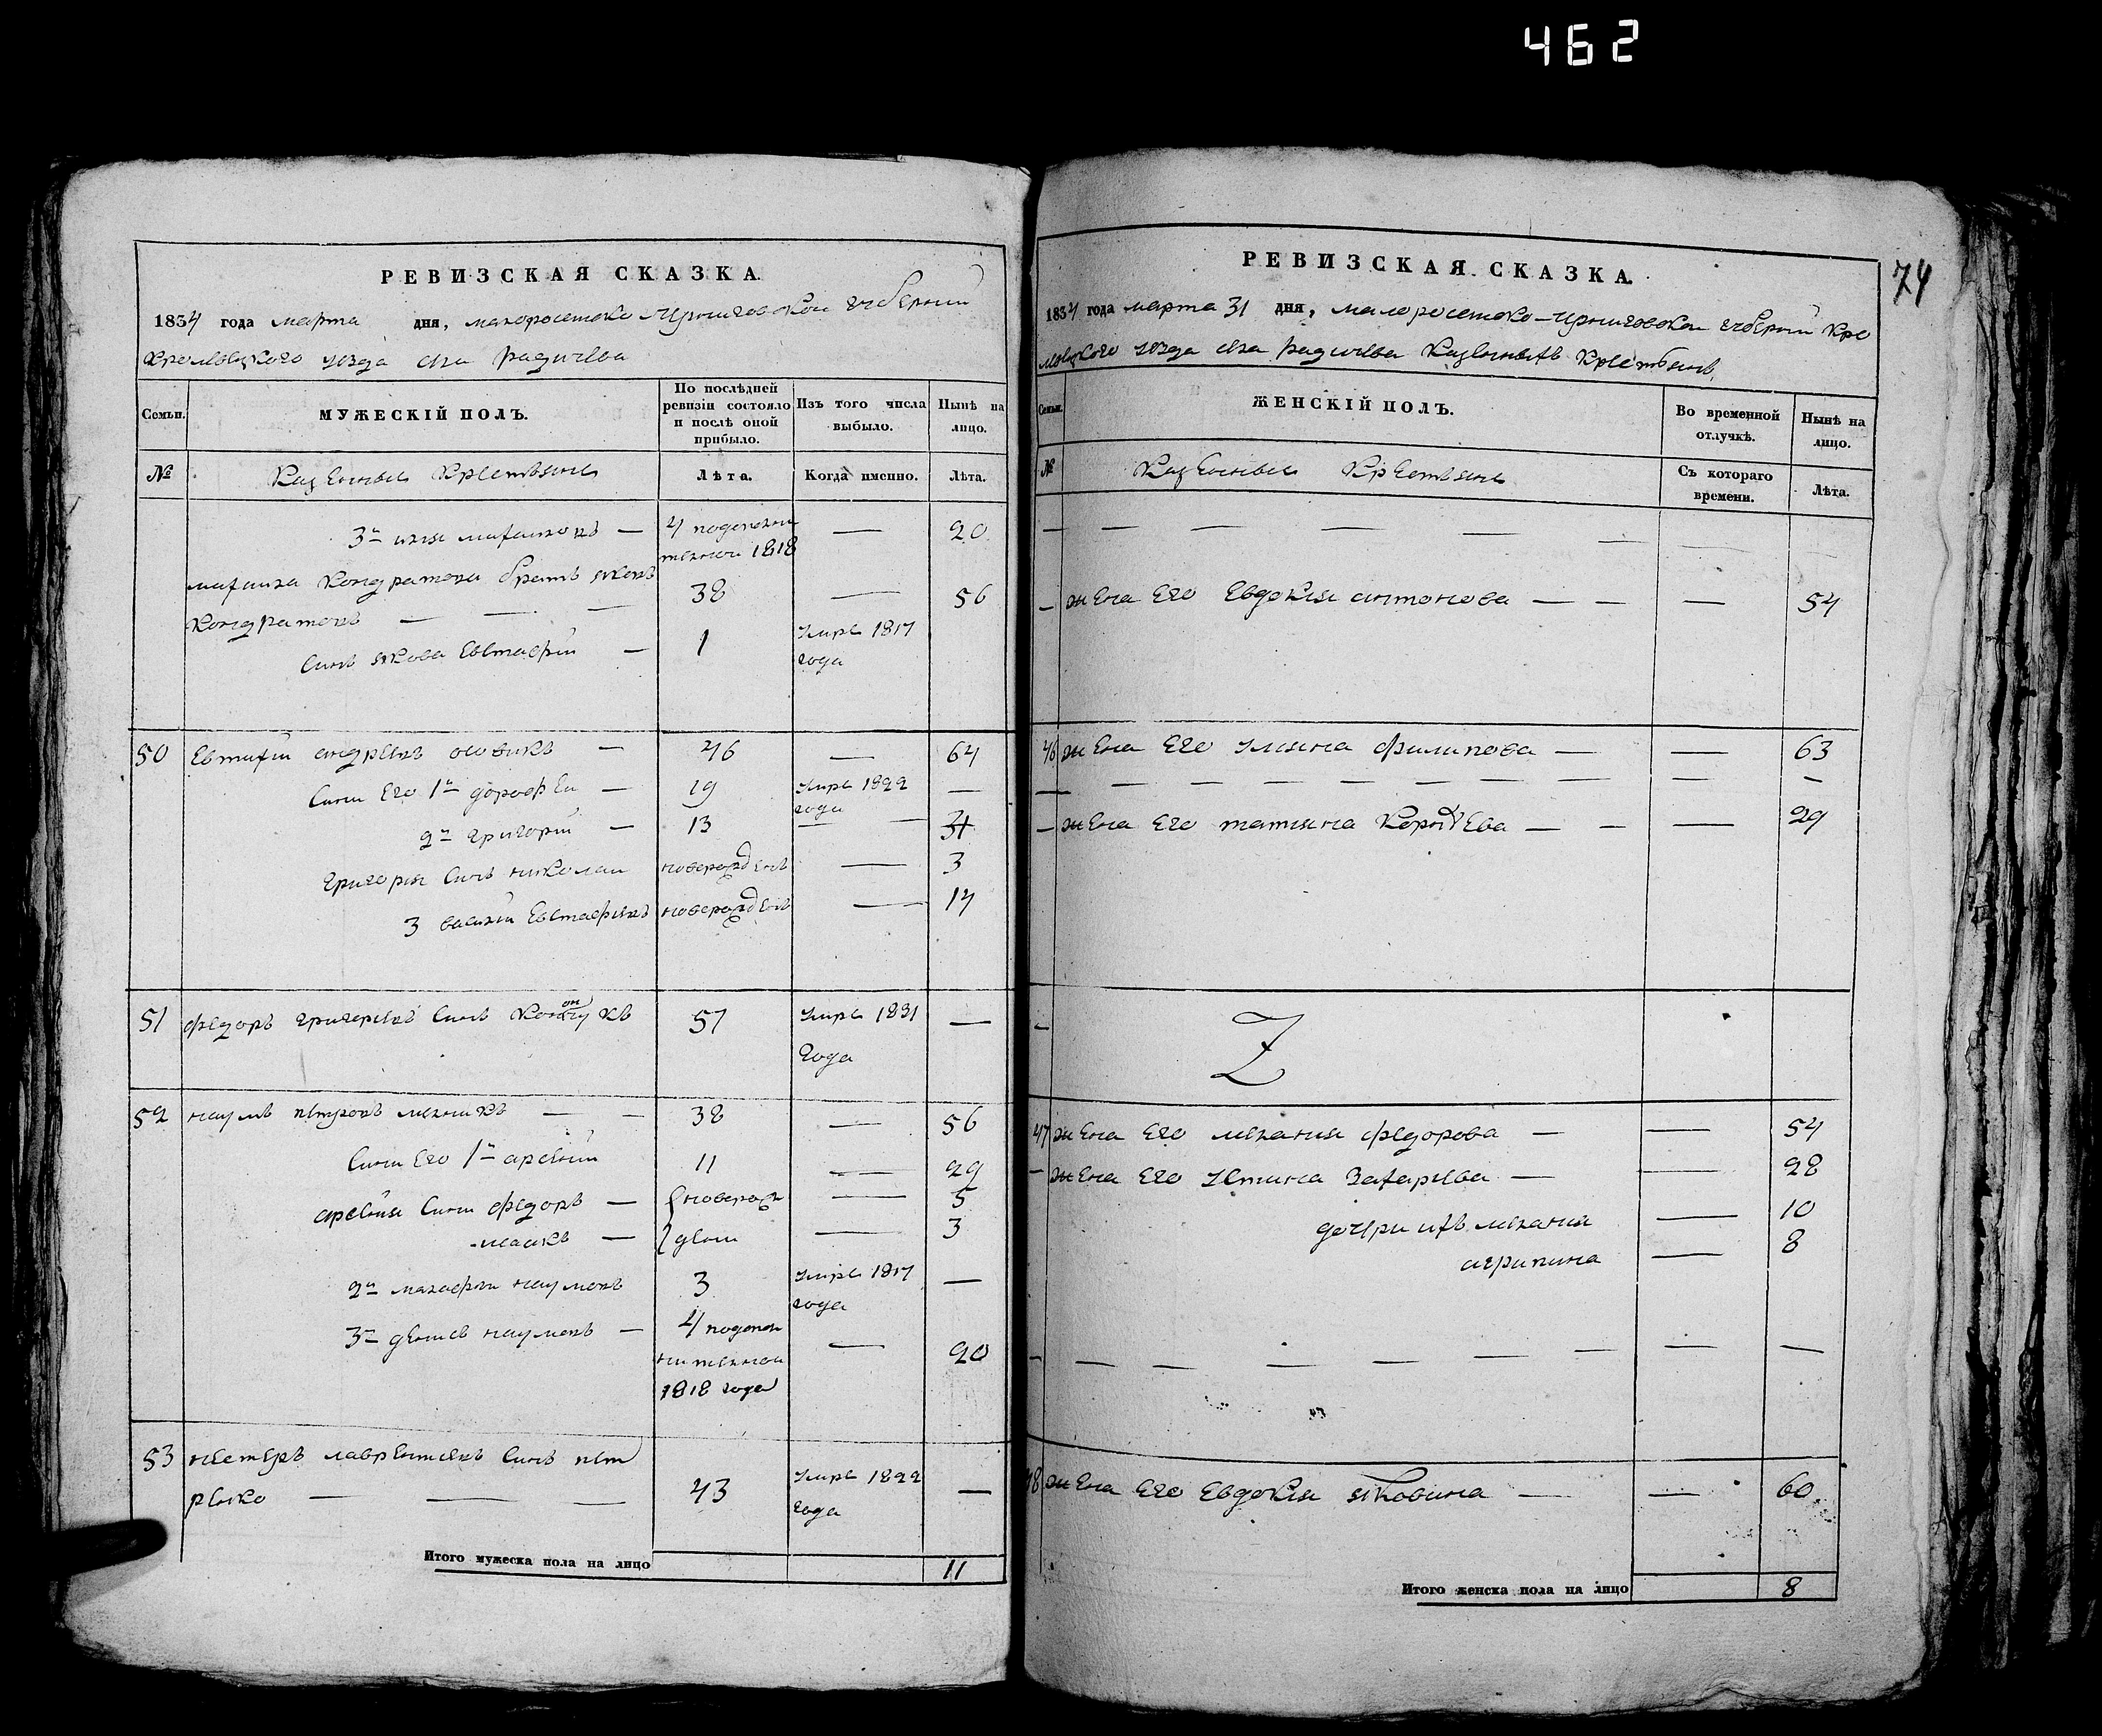 462
74
РЕВИЗСКАЯ СКАЗКА.
1834 года марта дня, малоросейско Черниговской губернии
Кролевецкого уезда села радичева
Семьи.
МУЖЕСКІЙ ПОЛЪ.
По послѣдней ревизіи состояло и послѣ оной прибыло.
Изъ того числа выбыло.
Нынѣ на лицо.
№
Казенные Крестьяне
Лѣта.
Когда именно.
Лѣта.
3й 4 1818 — 20
брать яковъ
Кондратовъ — 38 — 56
Синъ якова Евстафий — 1 умре 1817 года
50 андреевъ — 46 — 64
Сини Его 1й дорофей — 19 умре 1822 года —
2й григорий — 13 — 31
григория Синъ николай новорожденъ — 3
3 василий Евстафиевъ новорожденъ — 14
51 федоръ григориевъ Синъ 57 умре 1831 года —
52 наумъ петровъ — 38 — 56
Сини Его 1й арсений 11 — 29
арсения Сини федоръ — новорож — 5
исаакъ — дени — 3
2й наумовъ 3 умре 1817 года —
3й денисъ наумовъ — 4 1818 года — 20
53 лаврентиевъ Синъ пет
ренко — 43 умре 1822 года —
Итого мужеска пола на лицо 11
РЕВИЗСКАЯ СКАЗКА.
1834 года марта 31 дня, малоросейско-Черниговской губернии Кро
левецкого уезда села радичева Казенныхъ Крестьянъ
Семьи.
ЖЕНСКІЙ ПОЛЪ.
Во временной отлучкѣ.
Нынѣ на лицо.
№
Казенные Крестьяне
Съ котораго времени.
Лѣта.
— жена Его Евдокия антонова — — 54
46 жена Его улияна филипова — — 63
— жена Его татияна — — 29
47 жена Его мелания федорова — — 54
— жена Его устина Захариева — — 28
дочери ихъ мелания — 10
агрипина — 8
48 жена Его Евдокия яковина — — 60
Итого женска пола на лицо 8